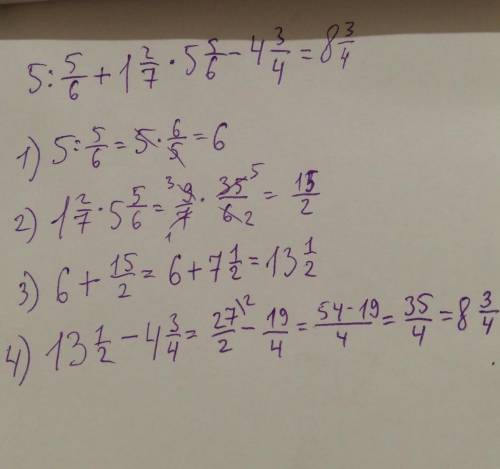 5 : 5/6 + 1 2/7 · 5 5/6 − 4 3/4 = 8 3/4
1) 5 : 5/6 = 5 · 6/5 = 6
2) 1 2/7 · 5 5/6 = ³9/7₁ · 35⁵/6₂ = 15/2
3) 6 + 15/2 = 6 + 7 1/2 = 13 1/2
4) 13 1/2 − 4 3/4 = 27\²/2 − 19/4 = 54-19/4 = 35/4 = 8 3/4